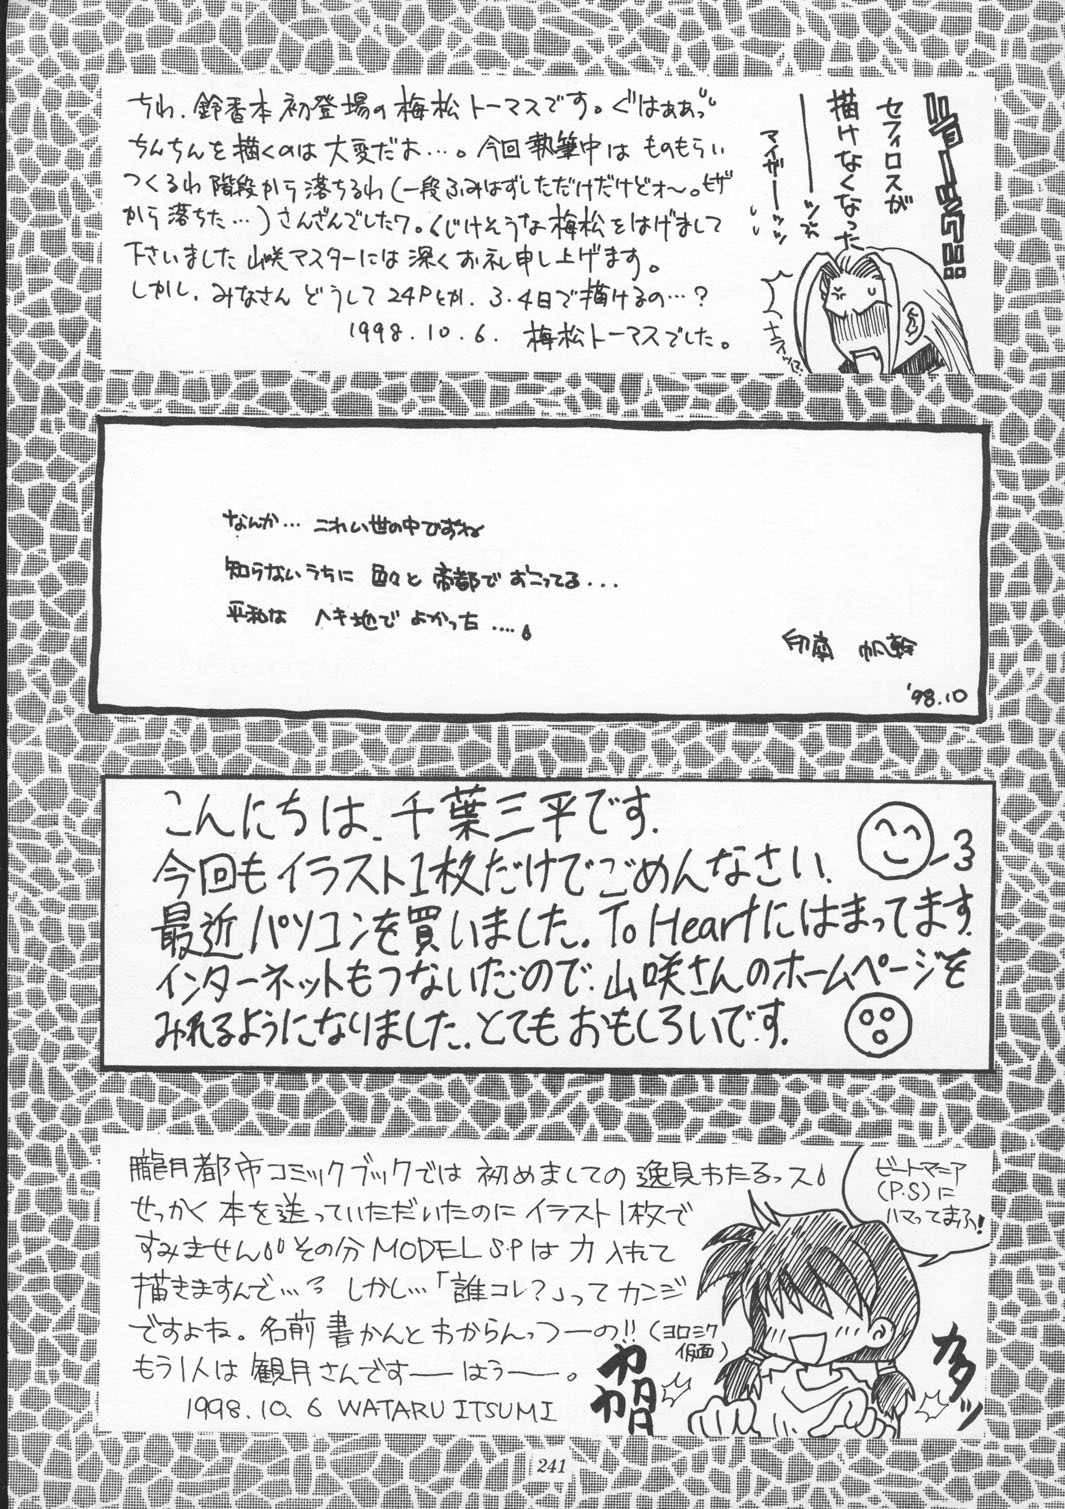 ちわ、鈴香本初登場の梅松トーマスです。ぐはぁぁっ
ちんちんを描くのは大変だよ…。今回執筆中はものもらい
つくるわ階段から落ちるわ(一段ふみはずしただけだけどォ〜。ヒザ
から落ちた…)さんざんでした?。くじけそうな梅松をはげまして
下さいました山咲マスターには深くお礼申し上げます。
しかし、みなさんどうして24Pとか、3・4日で描けるの…?
1998.10.6. 梅松トーマスでした。
セフィロスが
描けなくなった
マイガーーッッ
なんか… こわい世の中ですね
知らないうちに 色々と 帝都で おこってる...
平和な ヘキ地で よかった ....
印南 帆幹
'98.10
こんにちは、千葉三平です.
今回もイラスト1枚だけでごめんなさい.
最近パソコンを買いました。To Heartにはまってます.
インターネットもつないだので、山咲さんのホームページを
みれるようになりました。とてもおもしろいです.
朧月都市コミックブックでは初めましての逸見わたるっス
せっかく本を送っていただいたのにイラスト1枚で
すみません その分MODEL S.Pは力入れて
描きますんで…? しかし…「誰コレ?」ってカンジ
ですよね。名前書かんとわからんっつーの!!(ヨロシク仮面)
もう1人は観月さんですーーはうーー。
1998.10.6 WATARU ITSUMI
ビートマニア
(P.S)に
ハマってまふ!
カタッ
カカカカ
241